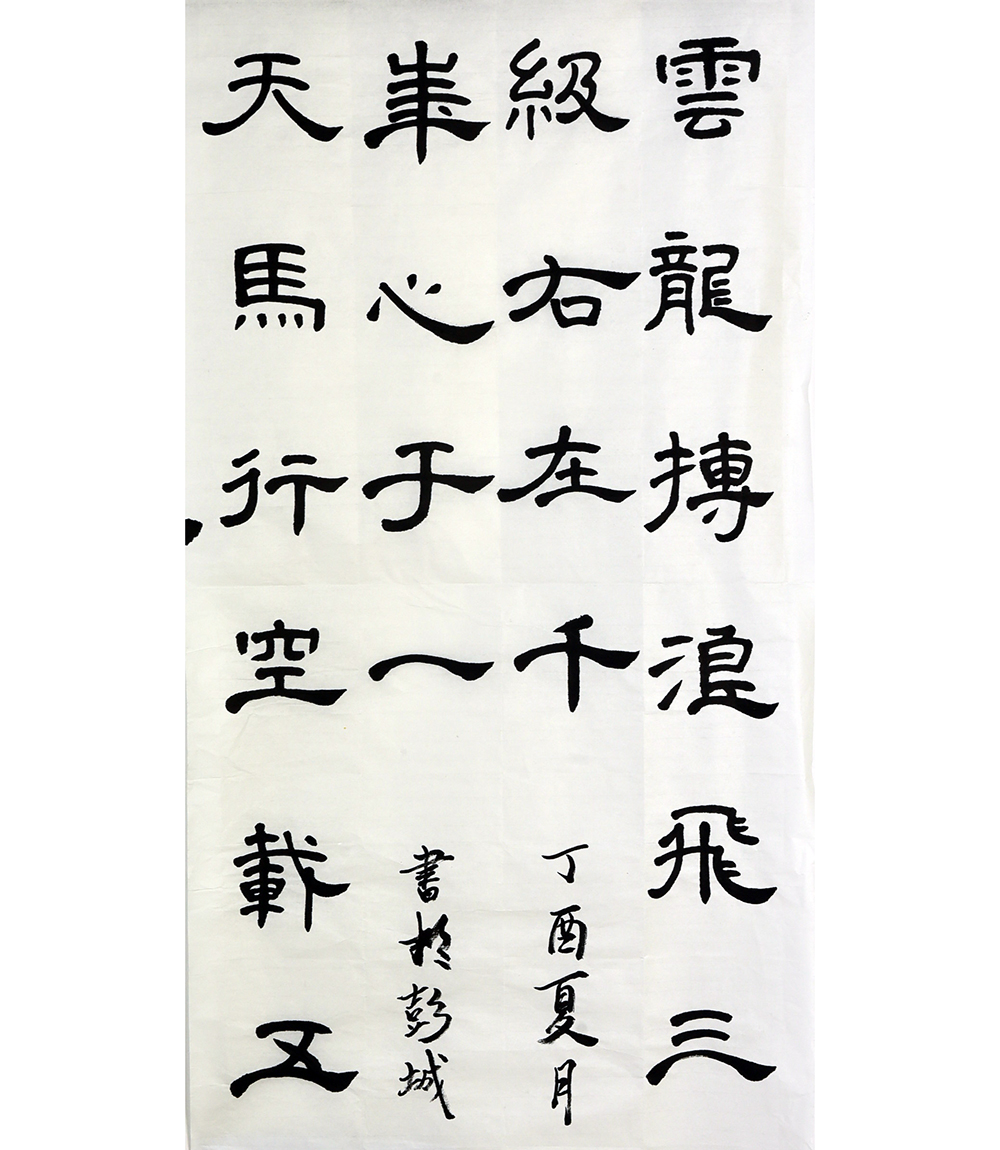 雲龍搏浪飛三
級右左千
丁酉夏月
心于一
書於彭城
天馬行空載五